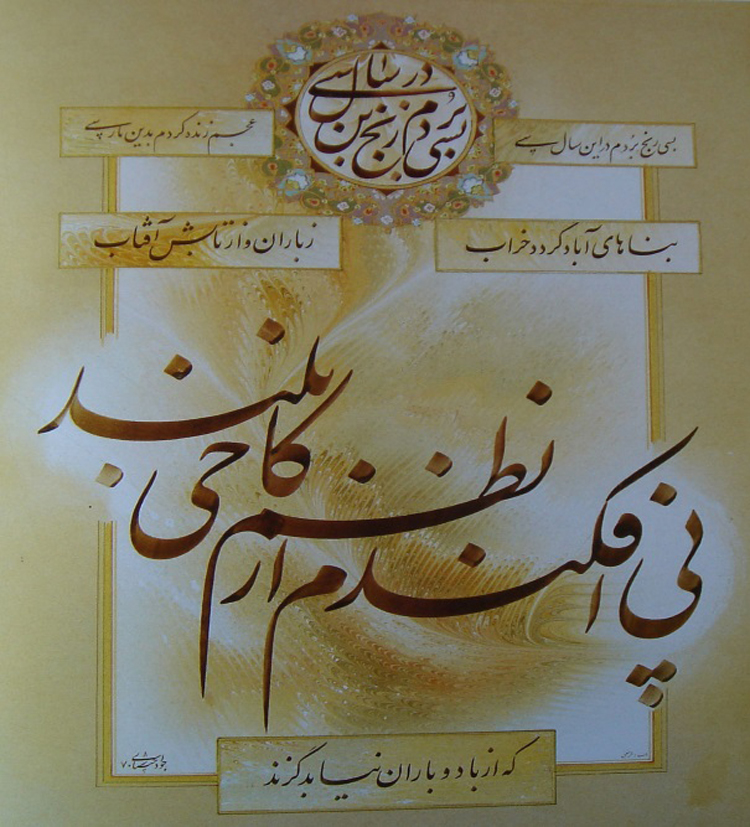 بسی رنج بردم در این سال سی
بسی رنج بُردم در این سال سی
عجم زنده کردم بدین پارسی
بناهای آباد گردد خراب
ز باران و از تابش آفتاب
پی افکندم از نظم کاخی بلند
که از باد و باران نیابد گزند